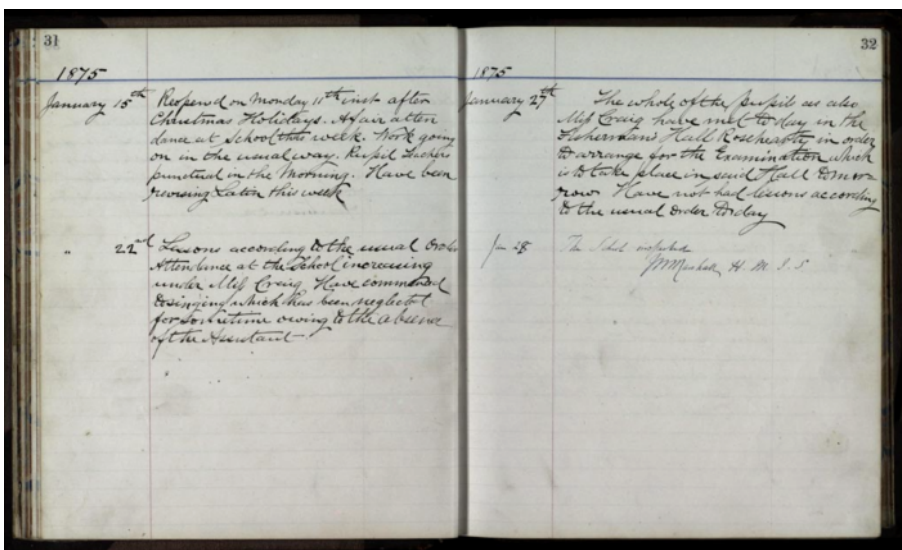 31
1875
January 15th Reopened on Monday 11th inst after
Christmas Holidays. A fair atten
dance at School this week. Work going
on in the usual way. Pupil Teachers
punctual in the Morning. Have been
revising Latin this week
" 22nd Lessons according to the usual Order
Attendance at the School increasing
under Miss Craig Have commenced
singing which has been neglected
for sometime owing to the absence
of the Assistant
32
1875
January 27th The whole of the Pupils as also
Miss Craig have met to day in the
Fisherman's Hall Rosehearty in order
to arrange for the Examination which
is to take place in said Hall tomor
row Have not had lessons according
to the usual order to day
Jan 28 The School inspected
H. M. I. S